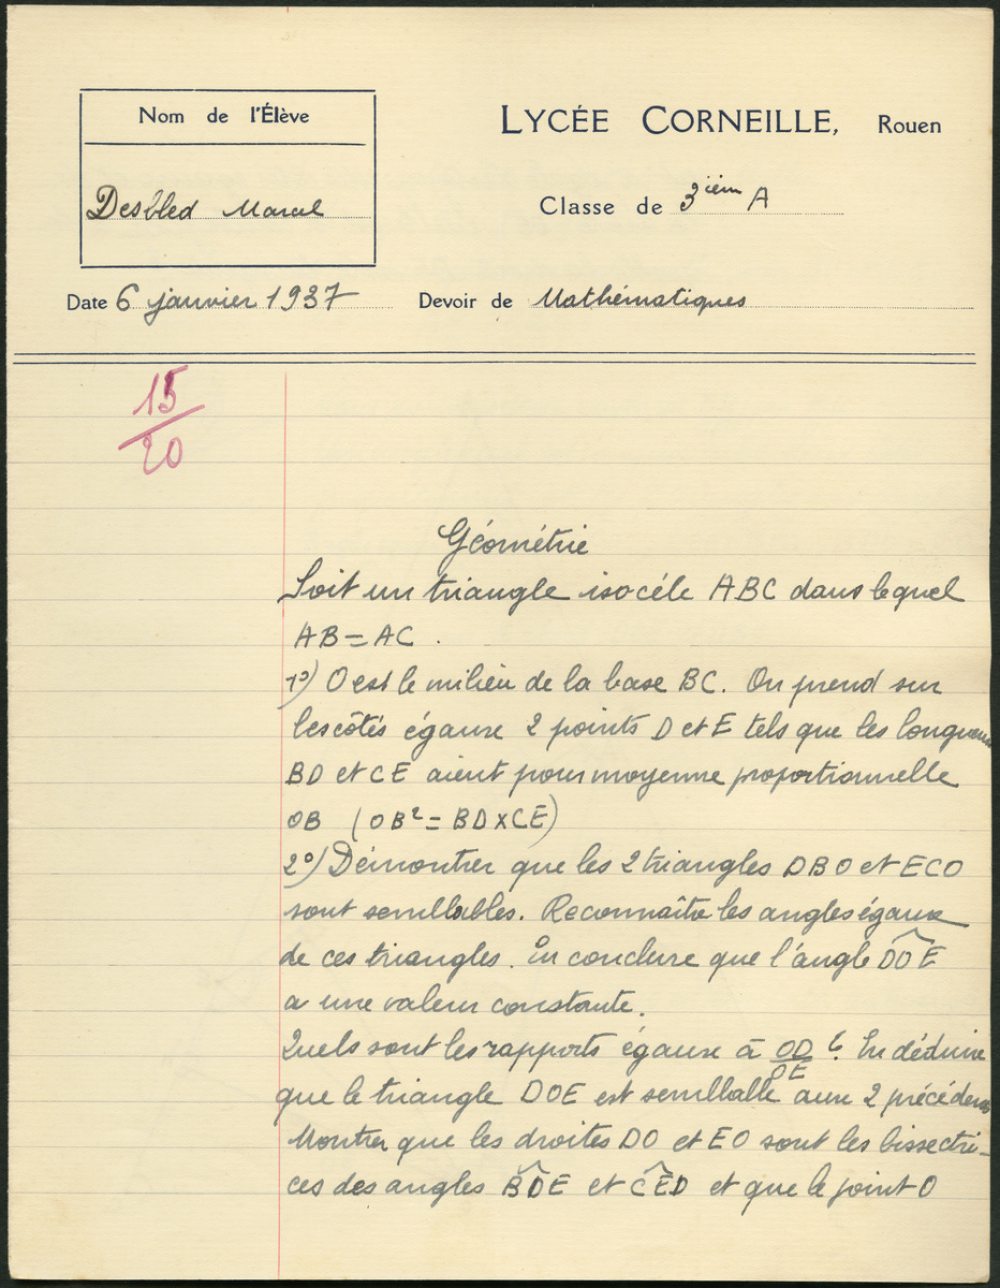 Nom de l'Élève
LYCÉE CORNEILLE, Rouen
Desbled Marcel
Classe de 3ièm A
Date 6 janvier 1937 Devoir de Mathématiques
15
20
Géométrie
Soit un triangle isocéle ABC dans lequel
AB = AC.
1°) O est le milieu de la base BC. On prend sur
les côtés égaux 2 points D et E tels que les longueurs
BD et CE aient pour moyenne proportionnelle
OB (OB² = BD x CE)
2°) Démontrer que les 2 triangles DBO et ECO
sont semblables. Reconnaître les angles égaux
de ces triangles. En conclure que l'angle DOE
a une valeur constante.
Quels sont les rapports égaux à OD/OE ? En déduire
que le triangle DOE est semblable aux 2 précédents
Montrer que les droites DO et EO sont les bissectri-
ces des angles BDE et CED et que le point O